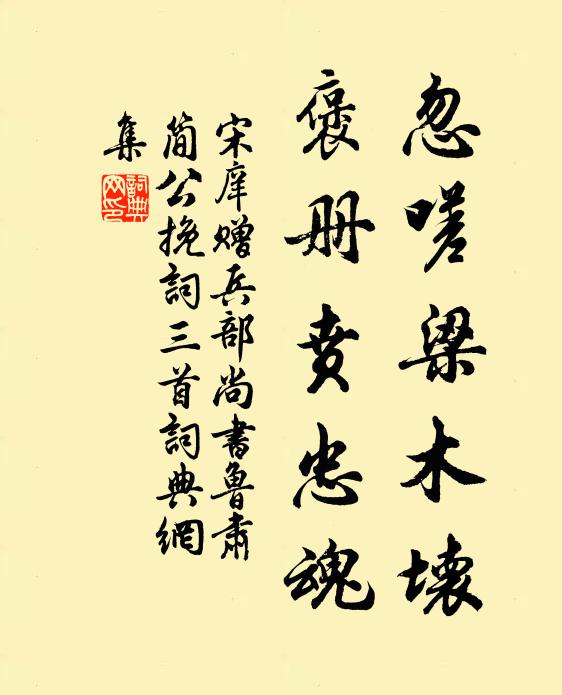 忽嗟梁木壞
褒册賁忠魂
宋庠贈兵部尚書魯肅
简公挽詞三首詞典網
集
詞典網印